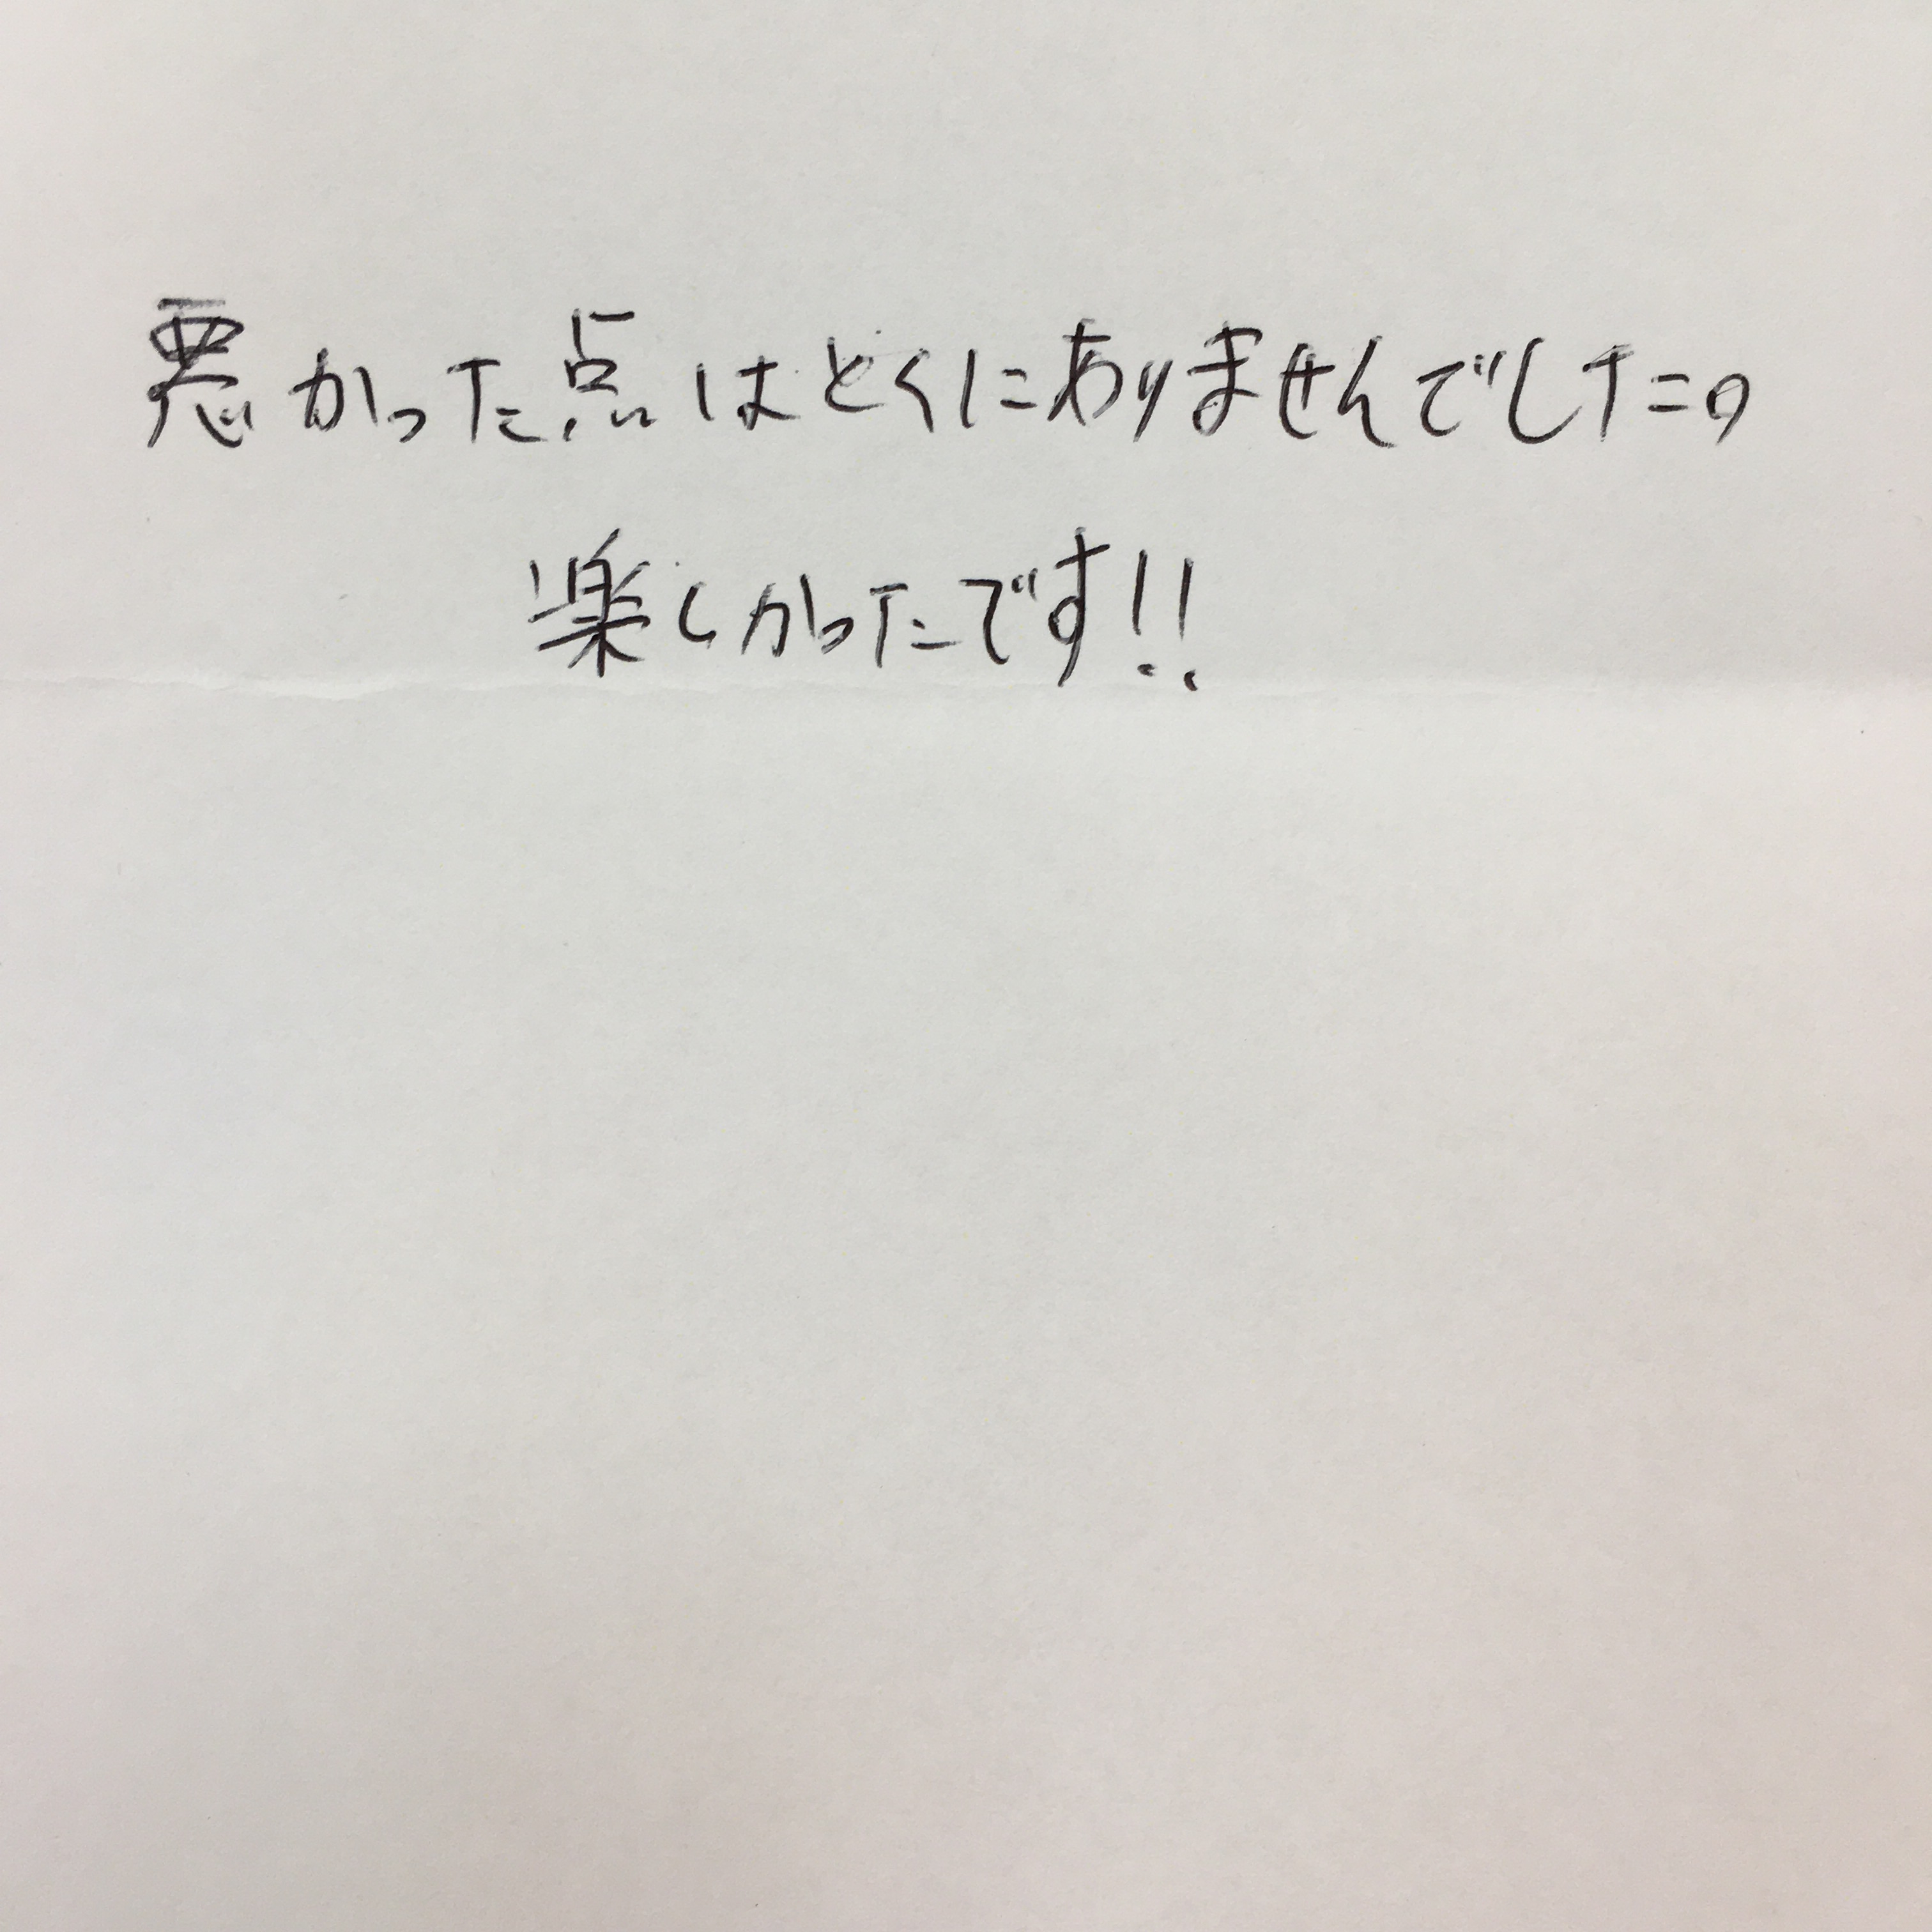 悪かった点はとくにありませんでした。
楽しかったです!!